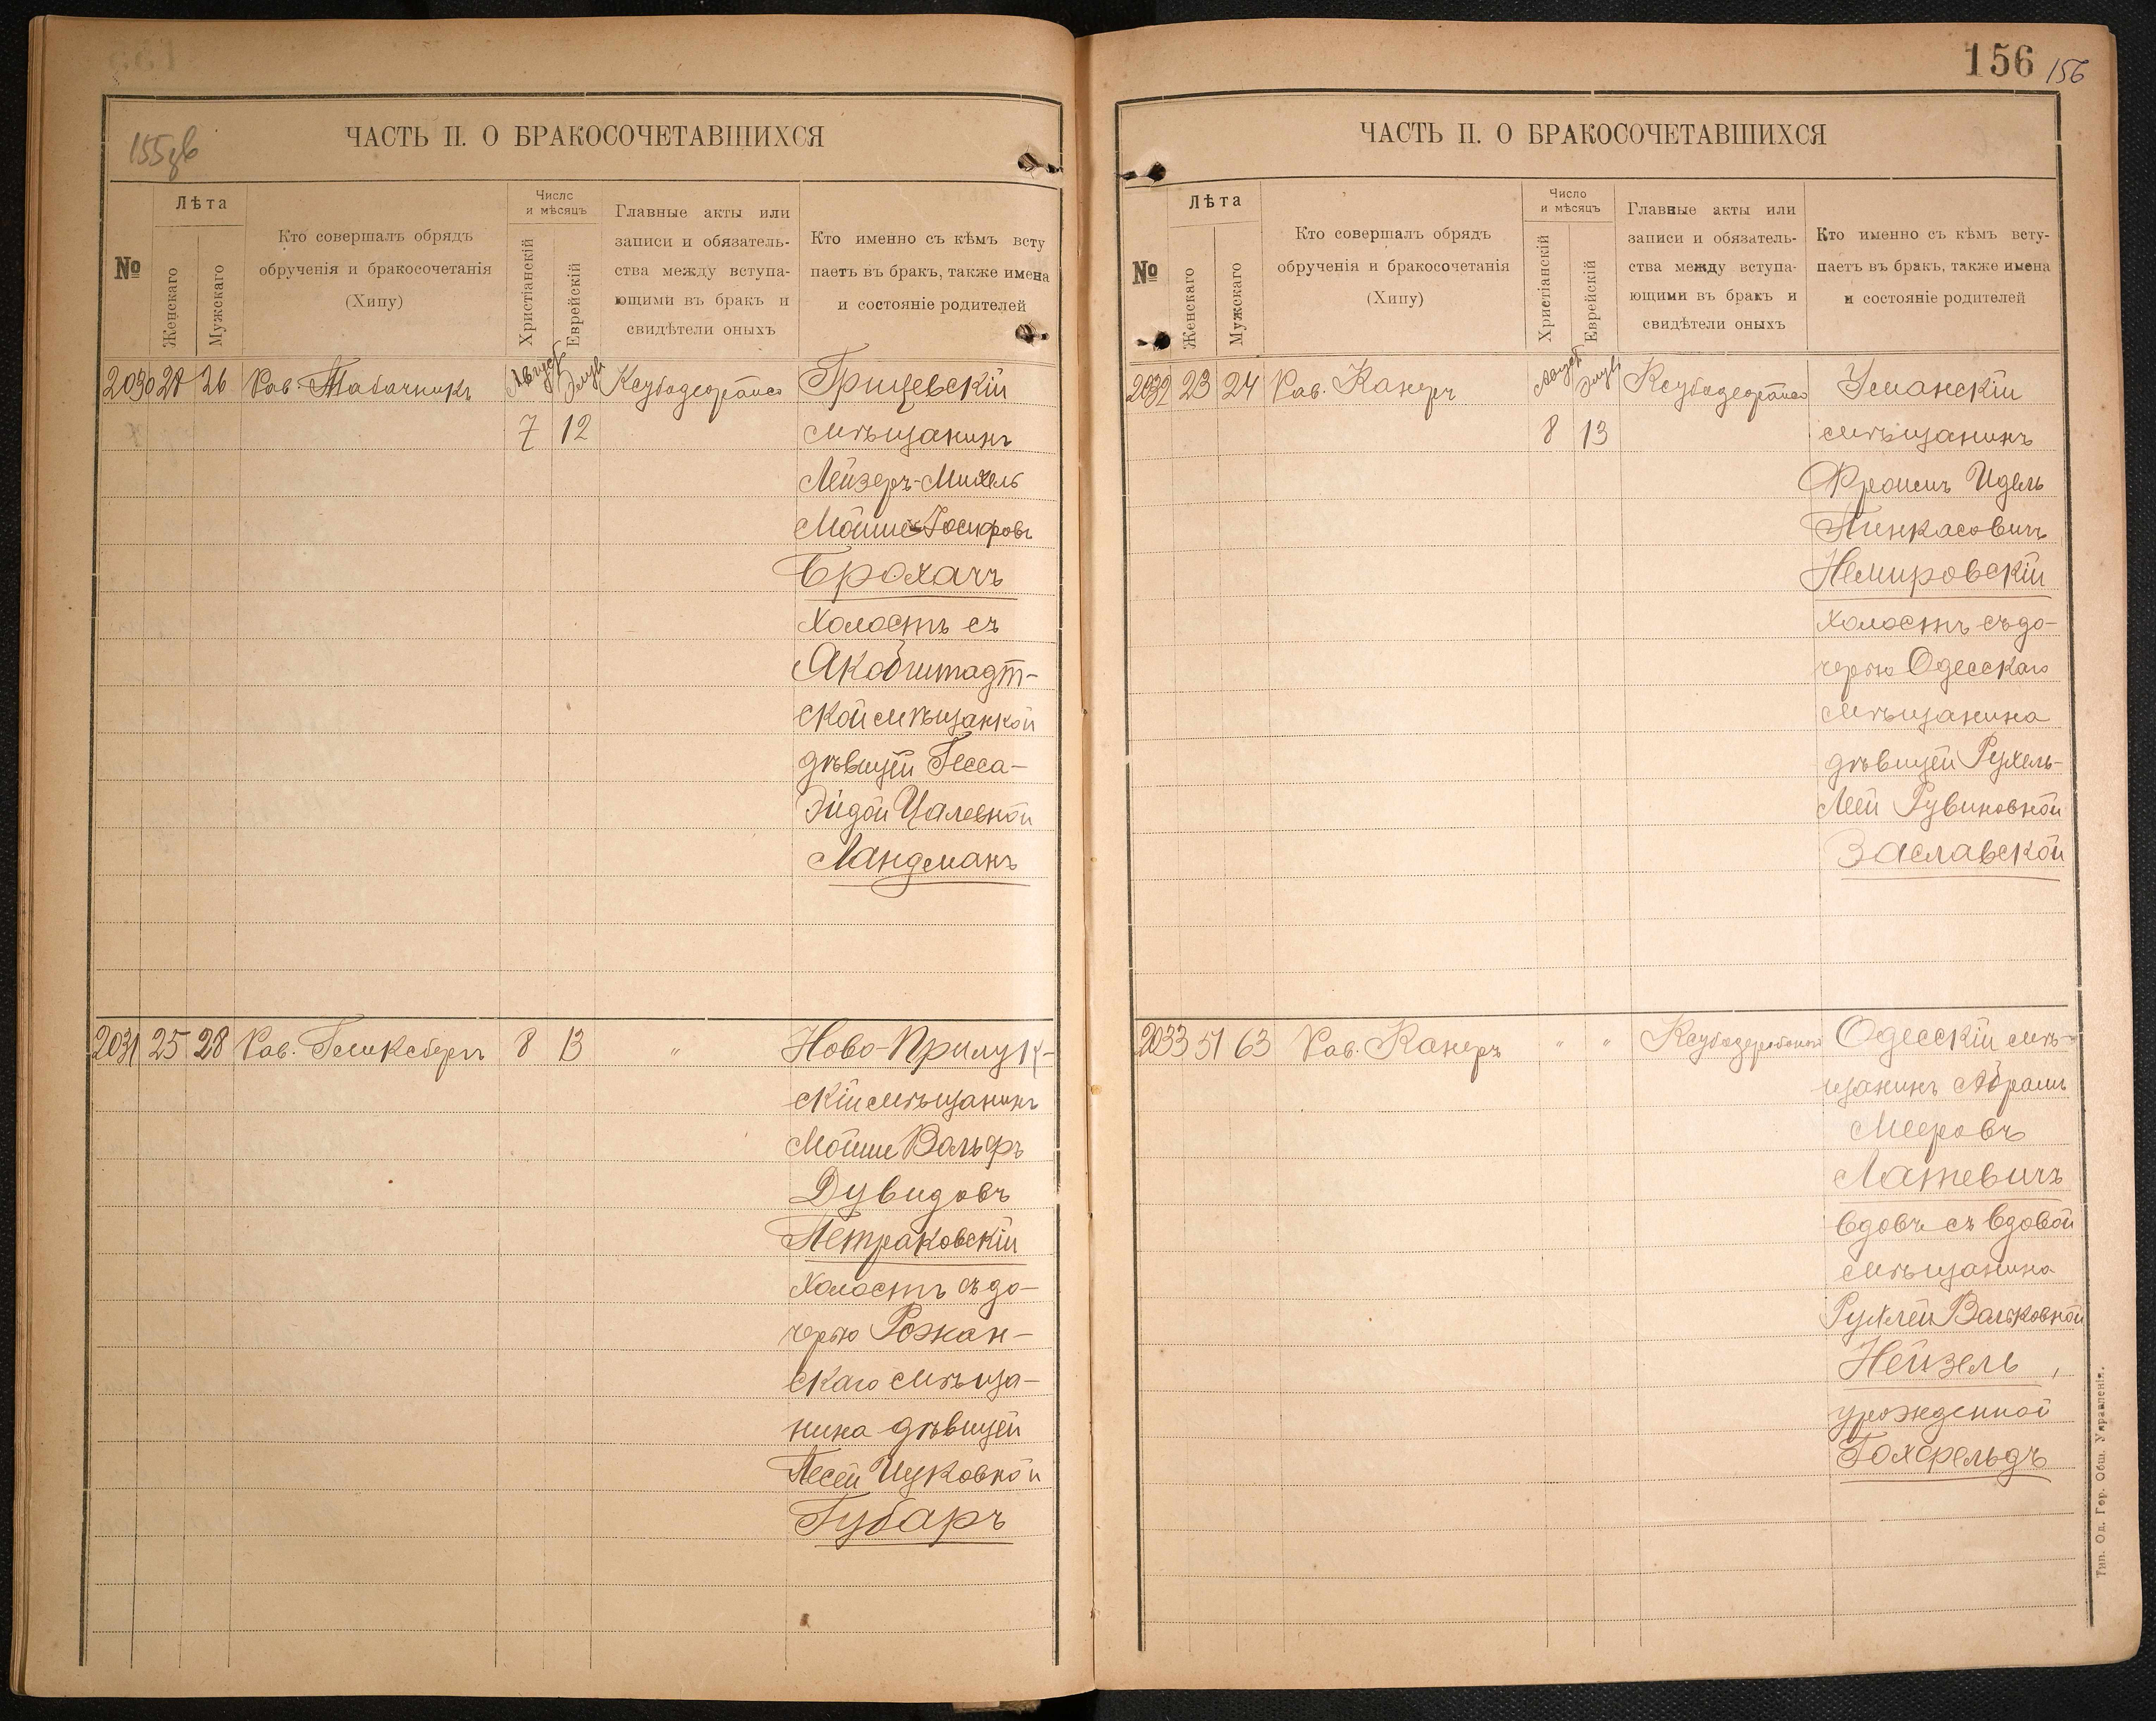 155зв
ЧАСТЬ II. О БРАКОСОЧЕТАВШИХСЯ
№
Лѣта
Женскаго
Мужскаго
Кто совершалъ обрядъ
обрученія и бракосочетанія
(Хипу)
Число
и мѣсяцъ
Христіанскій
Еврейскій
Главные акты или
записи и обязатель-
ства между вступа-
ющими въ бракъ и
свидѣтели оныхъ
Кто именно съ кѣмъ всту
паетъ въ бракъ, также имена
и состояніе родителей
2030 28 26 Рав. Табачникъ Август Элулъ Ксубадеорайсо Грицевскій
7 12 мѣщанинъ
Лейзеръ-Михель
Мойше Іосифовъ
Брохачъ
холостъ съ
Якобштадт-
ской мѣщанкой
дѣвицей Гесса-
Эйдой Цалевной
Ландманъ
2031 25 28 Рав. Гинксбергъ 8 13 " Ново-Прилук-
скій мѣщанинъ
Мойше Вольфъ
Дувидовъ
Петраковскій
холостъ съ до-
черью Рожан-
скаго мѣща-
нина дѣвицей
Песей Ицковной
Губаръ
156 156
ЧАСТЬ II. О БРАКОСОЧЕТАВШИХСЯ
№
Лѣта
Женскаго
Мужскаго
Кто совершалъ обрядъ
обрученія и бракосочетанія
(Хипу)
Число
и мѣсяцъ
Христіанскій
Еврейскій
Главные акты или
записи и обязатель-
ства между вступа-
ющими въ бракъ и
свидѣтели оныхъ
Кто именно съ кѣмъ всту-
паетъ въ бракъ, также имена
и состояніе родителей
2032 23 24 Рав. Канеръ Август Элулъ Ксубадеорайсо Уманскій
8 13 мѣщанинъ
Фроимъ Идель
Пинкасовичъ
Немировскій
холостъ съ до-
черью Одесскаго
мѣщанина
дѣвицей Рухель-
Леей Рувиновной
Заславской
2033 51 63 Рав. Канеръ " " Ксубадерабонон Одесскій мѣ-
щанинъ Абрамъ
Мееровъ
Латевичъ
вдовъ съ вдовой
мѣщанина
Рухлей Вольковной
Нейзель,
урожденной
Гохфельдъ
Тип. Од. Гор. Общ. Управленія.